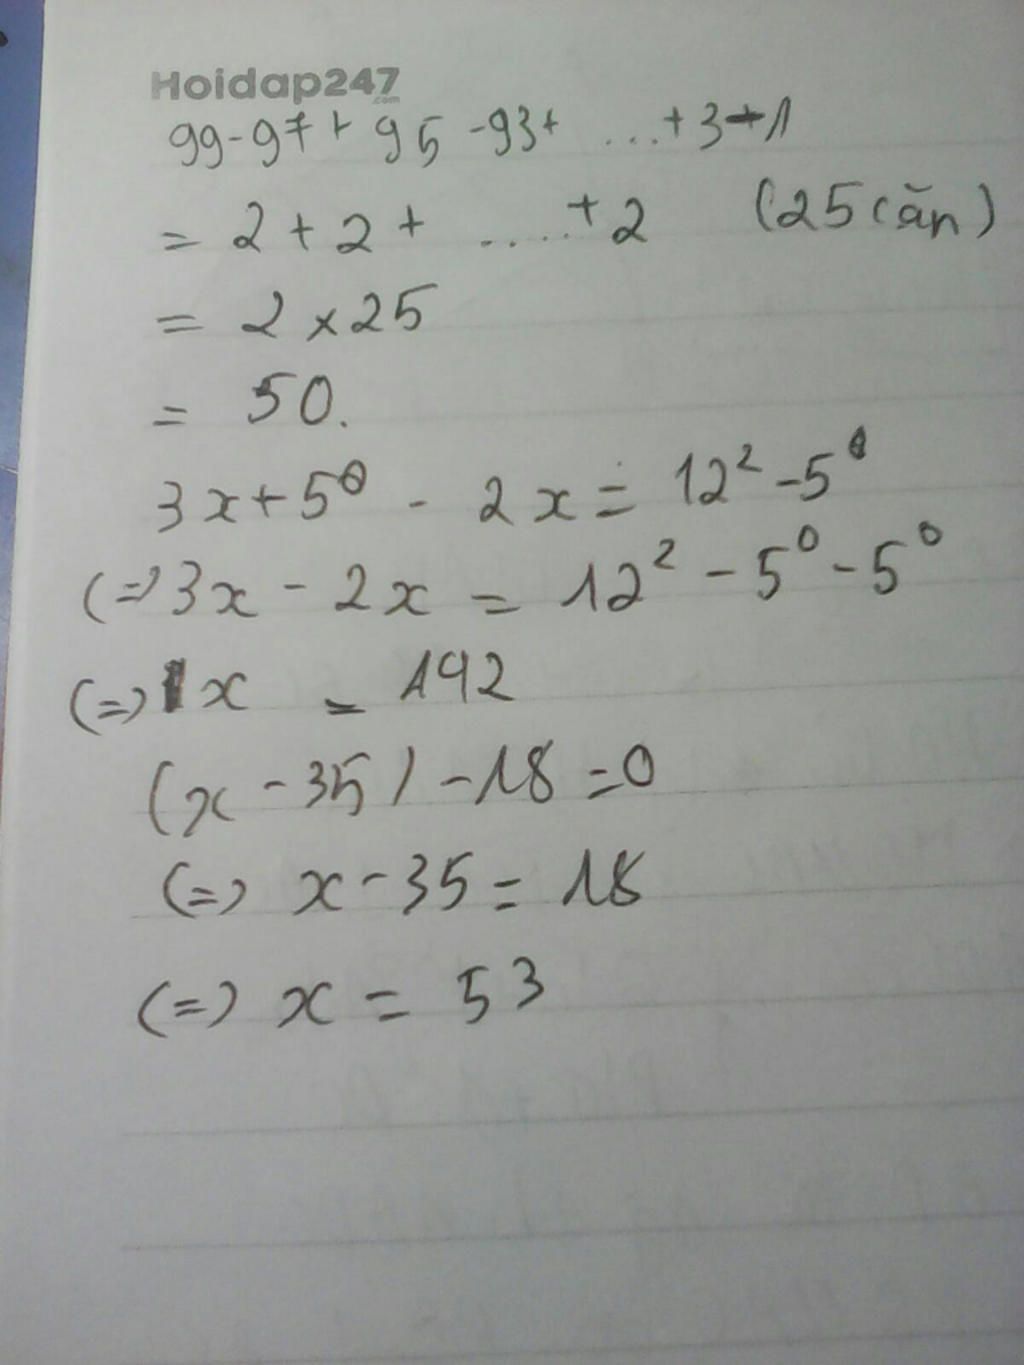 Hoidap247
.com
99-97+95-93+ ...+3-1
= 2+2+ .....+2 (25 cặn)
= 2×25
= 50.
3x+5⁰ - 2x = 12² -5⁰
(=) 3x - 2x = 12² - 5⁰ - 5⁰
(=) 1x = 142
(x - 35) - 18 = 0
(=) x - 35 = 18
(=) x = 53